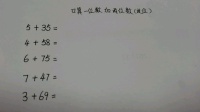 计算一位数加两位数(进位)
5+35=
4+58=
6+75=
7+47=
3+69=